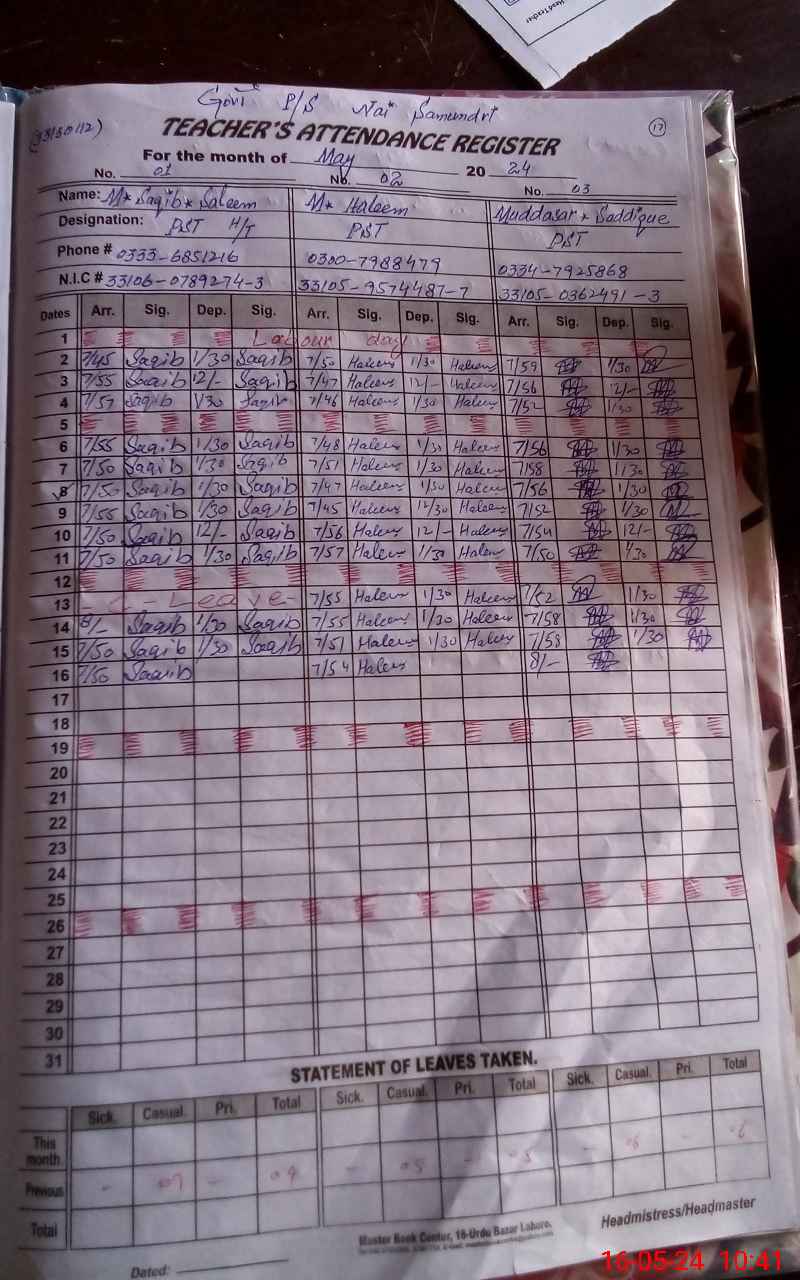 Head Teacher
Govt P/S Nai Samundri
(33130112) TEACHER'S ATTENDANCE REGISTER 17
For the month of May 20 24
No. 01 No. 02 No. 03
Name: M* Saqib* Saleem M* Haleem Muddasar* Saddique
Designation: PST H/T PST PST
Phone # 0333-6851216 0300-7988479 0334-7925868
N.I.C # 33106-0789274-3 33105-9574487-7 33105-0362491-3
Dates Arr. Sig. Dep. Sig. Arr. Sig. Dep. Sig. Arr. Sig. Dep. Sig.
1 Labour day
2 7/45 Saqib 1/30 Saqib 7/50 Haleem 1/30 Haleem 7/59 1/30
3 7/55 Saqib 12/- Saqib 7/47 Haleem 12/- Haleem 7/56 12/-
4 7/57 Saqib 1/30 Saqib 7/46 Haleem 1/30 Haleem 7/52 1/30
5
6 7/55 Saqib 1/30 Saqib 7/48 Haleem 1/30 Haleem 7/56 1/30
7 7/50 Saqib 1/30 Saqib 7/51 Haleem 1/30 Haleem 7/58 1/30
8 7/50 Saqib 1/30 Saqib 7/47 Haleem 1/30 Haleem 7/56 1/30
9 7/55 Saqib 1/30 Saqib 7/45 Haleem 12/30 Haleem 7/52 1/30
10 7/50 Saqib 12/- Saqib 7/56 Haleem 12/- Haleem 7/54 12/-
11 7/50 Saqib 1/30 Saqib 7/57 Haleem 1/30 Haleem 7/50 1/30
12
13 - C - Leave - 7/55 Haleem 1/30 Haleem 7/52 1/30
14 8/- Saqib 1/30 Saqib 7/55 Haleem 1/30 Haleem 7/58 1/30
15 7/50 Saqib 1/30 Saqib 7/51 Haleem 1/30 Haleem 7/58 1/30
16 7/50 Saqib 7/54 Haleem 8/-
17
18
19
20
21
22
23
24
25
26
27
28
29
30
31
STATEMENT OF LEAVES TAKEN.
Sick. Casual. Pri. Total Sick. Casual. Pri. Total Sick. Casual. Pri. Total
This month
Previous - - - 05 - 05 - 06 - 6
Total
Master Book Centur, 16-Urdu Bazar Lahore.
Headmistress/Headmaster
Dated:
16-05-24 10:41